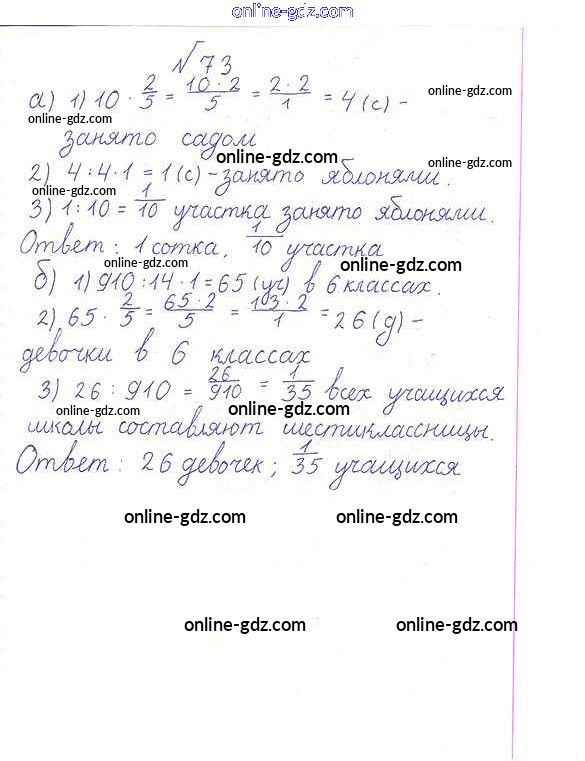 online-gdz.com
№73
а) 1) 10 · 2/5 = 10 · 2/5 = 2 · 2/1 = 4 (с) -
online-gdz.com
online-gdz.com
занято садом
online-gdz.com
online-gdz.com
2) 4 : 4 · 1 = 1 (с) - занято яблонями.
online-gdz.com
3) 1 : 10 = 1/10 участка занято яблонями.
Ответ: 1 сотка, 1/10 участка
online-gdz.com
online-gdz.com
б) 1) 910 : 14 · 1 = 65 (уч) в 6 классах.
2) 65 · 2/5 = 65 · 2/5 = 13 · 2/1 = 26 (д) -
девочки в 6 классах
3) 26 : 910 = 26/910 = 1/35 всех учащихся
online-gdz.com
online-gdz.com
школы составляют шестиклассницы.
Ответ: 26 девочек; 1/35 учащихся
online-gdz.com
online-gdz.com
online-gdz.com
online-gdz.com